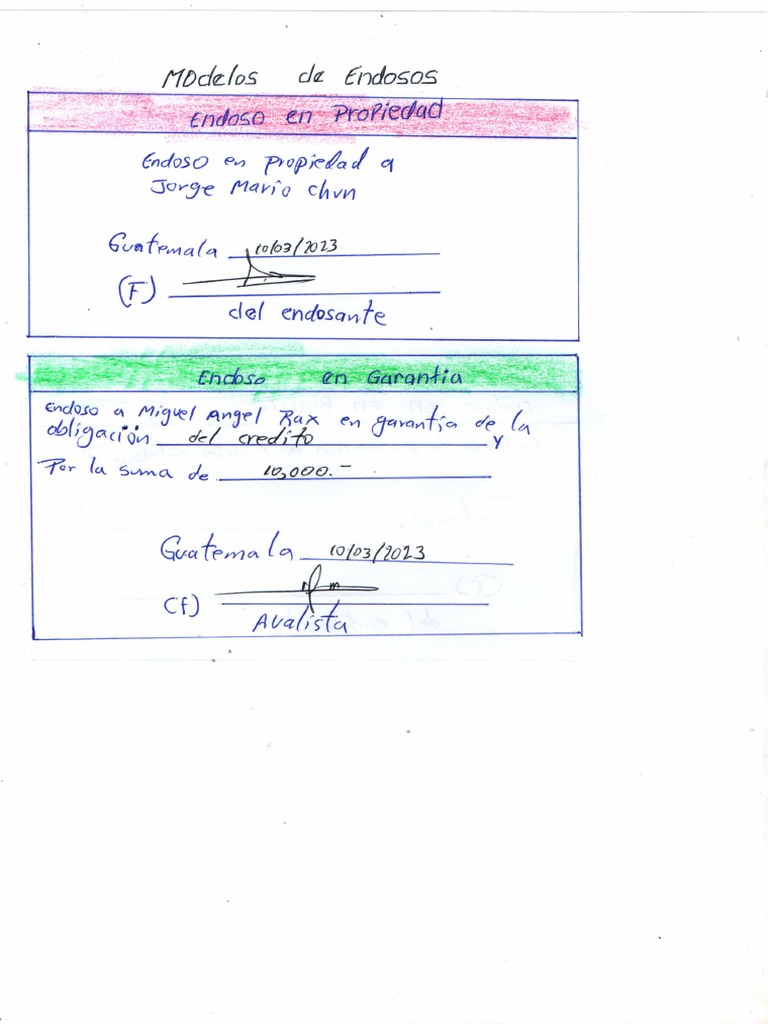 Modelos de Endosos
Endoso en Propiedad
Endoso en propiedad a
Jorge Mario Chun
Guatemala 10/03/2023
(F)
del endosante
Endoso en Garantia
Endoso a Miguel Angel Rax en garantía de la
obligación del credito y
Por la suma de 10,000.-
Guatemala 10/03/2023
(f)
Avalista